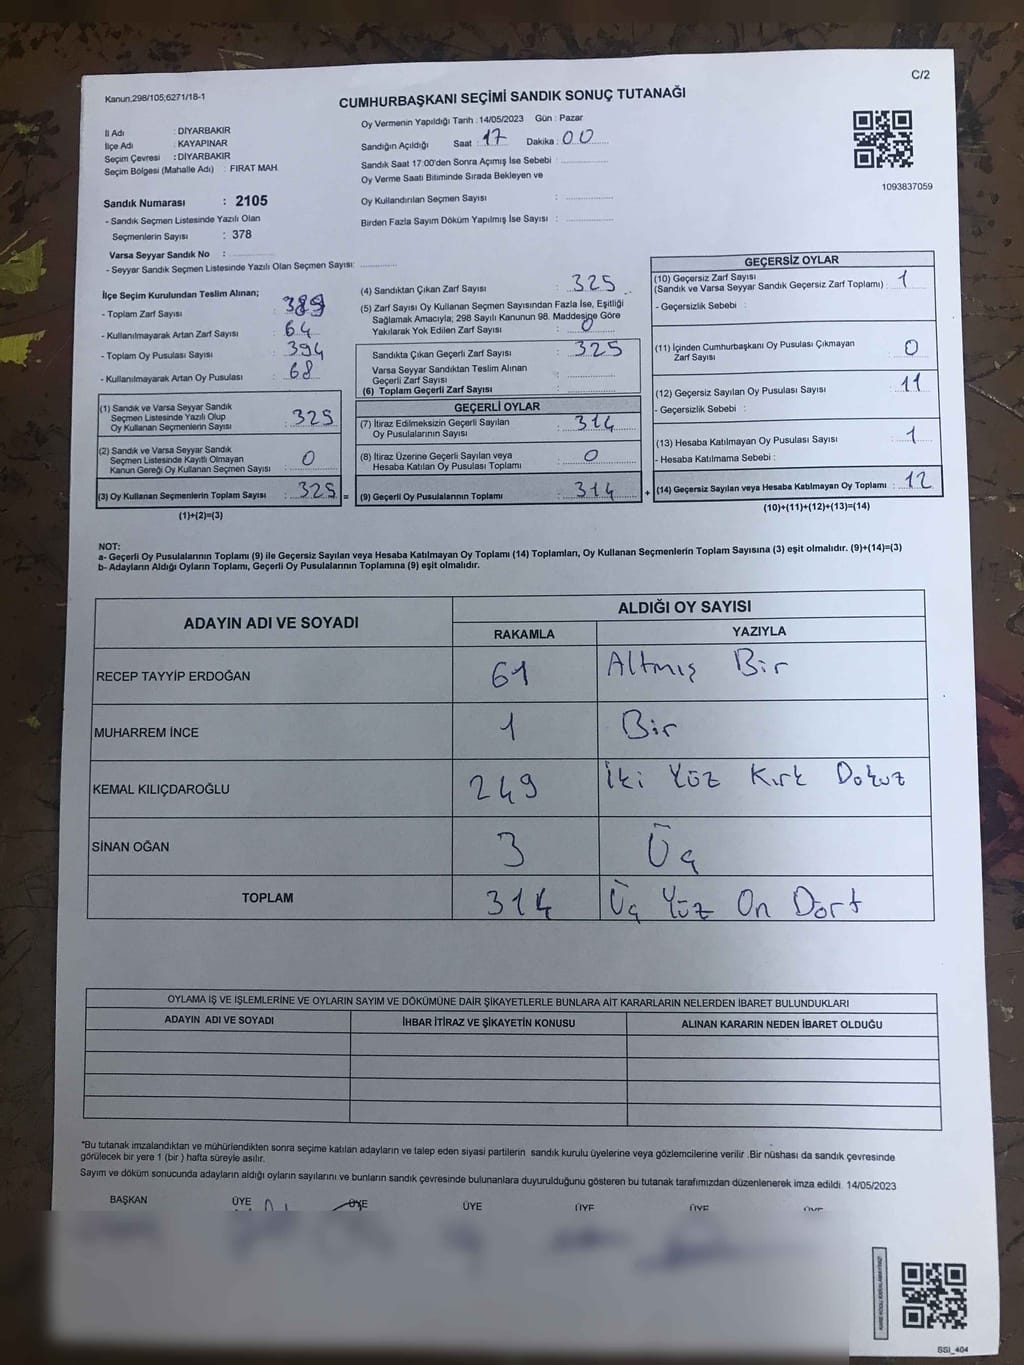 C/2
Kanun.298/105;6271/18-1
CUMHURBAŞKANI SEÇİMİ SANDIK SONUÇ TUTANAĞI
İl Adı : DİYARBAKIR
İlçe Adı : KAYAPINAR
Seçim Çevresi : DİYARBAKIR
Seçim Bölgesi (Mahalle Adı) : FIRAT MAH.
Sandık Numarası : 2105
- Sandık Seçmen Listesinde Yazılı Olan
Seçmenlerin Sayısı : 378
Varsa Seyyar Sandık No :
- Seyyar Sandık Seçmen Listesinde Yazılı Olan Seçmen Sayısı:
Oy Vermenin Yapıldığı Tarih : 14/05/2023 Gün : Pazar
Sandığın Açıldığı Saat : 17 Dakika : 00
Sandık Saat 17:00'den Sonra Açımış İse Sebebi :
Oy Verme Saati Bitiminde Sırada Bekleyen ve
Oy Kullandırılan Seçmen Sayısı :
Birden Fazla Sayım Döküm Yapılmış İse Sayısı :
1093837059
İlçe Seçim Kurulundan Teslim Alınan;
- Toplam Zarf Sayısı : 389
- Kullanılmayarak Artan Zarf Sayısı : 64
- Toplam Oy Pusulası Sayısı : 394
- Kullanılmayarak Artan Oy Pusulası : 68
(1) Sandık ve Varsa Seyyar Sandık
Seçmen Listesinde Yazılı Olup
Oy Kullanan Seçmenlerin Sayısı : 325
(2) Sandık ve Varsa Seyyar Sandık
Seçmen Listesinde Kayıtlı Olmayan
Kanun Gereği Oy Kullanan Seçmen Sayısı : 0
(3) Oy Kullanan Seçmenlerin Toplam Sayısı : 325 =
(1)+(2)=(3)
(4) Sandıktan Çıkan Zarf Sayısı : 325
(5) Zarf Sayısı Oy Kullanan Seçmen Sayısından Fazla İse, Eşitliği
Sağlamak Amacıyla; 298 Sayılı Kanunun 98. Maddesine Göre
Yakılarak Yok Edilen Zarf Sayısı : 0
Sandıkta Çıkan Geçerli Zarf Sayısı : 325
Varsa Seyyar Sandıktan Teslim Alınan
Geçerli Zarf Sayısı :
(6) Toplam Geçerli Zarf Sayısı :
GEÇERLİ OYLAR
(7) İtiraz Edilmeksizin Geçerli Sayılan
Oy Pusulalarının Sayısı : 314
(8) İtiraz Üzerine Geçerli Sayılan veya
Hesaba Katılan Oy Pusulası Toplamı : 0
(9) Geçerli Oy Pusulalarının Toplamı : 314 +
GEÇERSİZ OYLAR
(10) Geçersiz Zarf Sayısı
(Sandık ve Varsa Seyyar Sandık Geçersiz Zarf Toplamı) : 1
- Geçersizlik Sebebi :
(11) İçinden Cumhurbaşkanı Oy Pusulası Çıkmayan
Zarf Sayısı : 0
(12) Geçersiz Sayılan Oy Pusulası Sayısı : 11
- Geçersizlik Sebebi :
(13) Hesaba Katılmayan Oy Pusulası Sayısı : 1
- Hesaba Katılmama Sebebi :
(14) Geçersiz Sayılan veya Hesaba Katılmayan Oy Toplamı : 12
(10)+(11)+(12)+(13)=(14)
NOT:
a- Geçerli Oy Pusulalarının Toplamı (9) ile Geçersiz Sayılan veya Hesaba Katılmayan Oy Toplamı (14) Toplamları, Oy Kullanan Seçmenlerin Toplam Sayısına (3) eşit olmalıdır. (9)+(14)=(3)
b- Adayların Aldığı Oyların Toplamı, Geçerli Oy Pusulalarının Toplamına (9) eşit olmalıdır.
ADAYIN ADI VE SOYADI ALDIĞI OY SAYISI
RAKAMLA YAZIYLA
RECEP TAYYİP ERDOĞAN 61 Altmış Bir
MUHARREM İNCE 1 Bir
KEMAL KILIÇDAROĞLU 249 İki Yüz Kırk Dokuz
SİNAN OĞAN 3 Üç
TOPLAM 314 Üç Yüz On Dört
OYLAMA İŞ VE İŞLEMLERİNE VE OYLARIN SAYIM VE DÖKÜMÜNE DAİR ŞİKAYETLERLE BUNLARA AİT KARARLARIN NELERDEN İBARET BULUNDUKLARI
ADAYIN ADI VE SOYADI İHBAR İTİRAZ VE ŞİKAYETİN KONUSU ALINAN KARARIN NEDEN İBARET OLDUĞU
*Bu tutanak imzalandıktan ve mühürlendikten sonra seçime katılan adayların ve talep eden siyasi partilerin sandık kurulu üyelerine veya gözlemcilerine verilir .Bir nüshası da sandık çevresinde
görülecek bir yere 1 (bir ) hafta süreyle asılır.
Sayım ve döküm sonucunda adayların aldığı oyların sayılarını ve bunların sandık çevresinde bulunanlara duyurulduğunu gösteren bu tutanak tarafımızdan düzenlenerek imza edildi. 14/05/2023
BAŞKAN ÜYE ÜYE ÜYE ÜYE ÜYE ÜYE
SSI_404